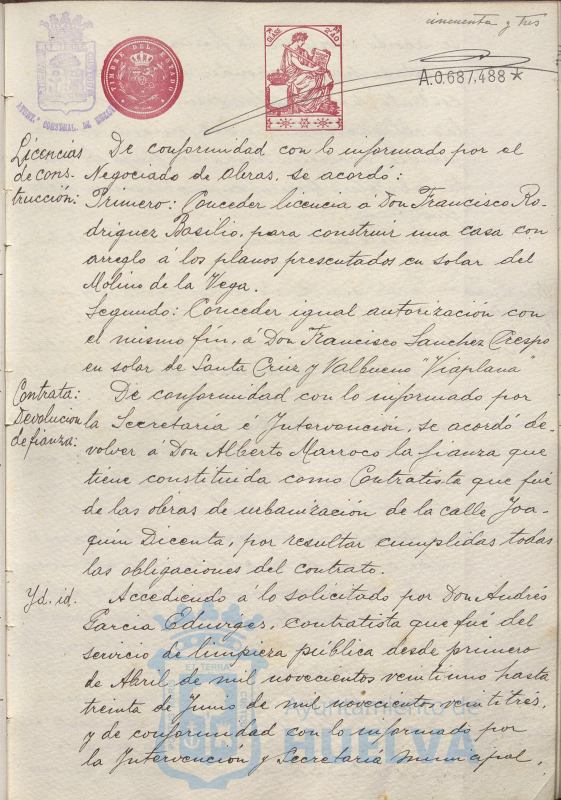 cincuenta y tres
TIMBRE DEL ESTADO
CLASE 8ª
A.0.687.488*
Licencias
de cons-
trucción:
De conformidad con lo informado por el
Negociado de Obras, se acordó:
Primero: Conceder licencia á Don Francisco Ro-
driguez Basilio, para construir una casa con
arreglo á los planos presentados en solar del
Molino de la Vega.
Segundo: Conceder igual autorización con
el mismo fin, á Don Francisco Sanchez Crespo
en solar de Santa Cruz y Valbueno "Viaplana"
Contrata:
Devolucion
de fianza:
De conformidad con lo informado por
la Secretaría é Intervención, se acordó de-
volver á Don Alberto Marroco la fianza que
tiene constituida como Contratista que fué
de las obras de urbanización de la calle Joa-
quin Dicenta, por resultar cumplidas todas
las obligaciones del contrato.
Yd. id.
Accediendo á lo solicitado por Don Andrés
Garcia Eduviges, contratista que fué del
servicio de limpieza pública desde primero
de Abril de mil novecientos veintiuno hasta
treinta de Junio de mil novecientos veintitrés,
y de conformidad con lo informado por
la Intervención y Secretaria municipal,
ET TERRA
Ayuntamiento de
HUELVA